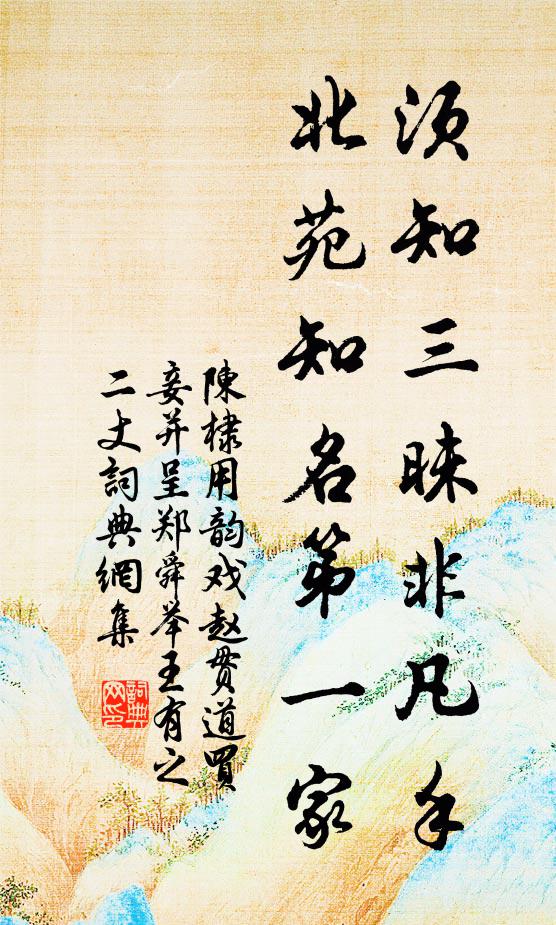 须知三昧非凡手
北苑知名第一家
陳棣用韵戏赵贯道買
妾并呈郑舜举王有之
二丈詞典網集
詞典网印